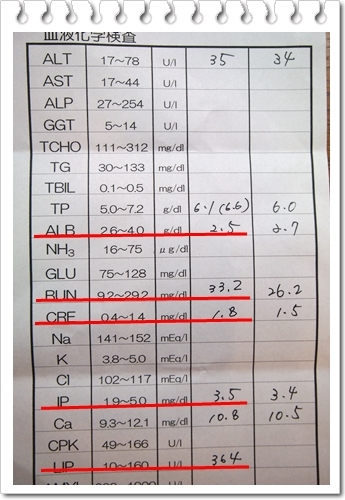 血液化学検査
ALT 17~78 U/l 35 34
AST 17~44 U/l
ALP 27~254 U/l
GGT 5~14 U/l
TCHO 111~312 mg/dl
TG 30~133 mg/dl
TBIL 0.1~0.5 mg/dl
TP 5.0~7.2 g/dl 6.1(6.6) 6.0
ALB 2.6~4.0 g/dl 2.5 2.7
NH3 16~75 μg/dl
GLU 75~128 mg/dl
BUN 9.2~29.2 mg/dl 33.2 26.2
CRE 0.4~1.4 mg/dl 1.8 1.5
Na 141~152 mEq/l
K 3.8~5.0 mEq/l
Cl 102~117 mEq/l
IP 1.9~5.0 mg/dl 3.5 3.4
Ca 9.3~12.1 mg/dl 10.8 10.5
CPK 49~166 U/l
LIP 10~160 U/l 364